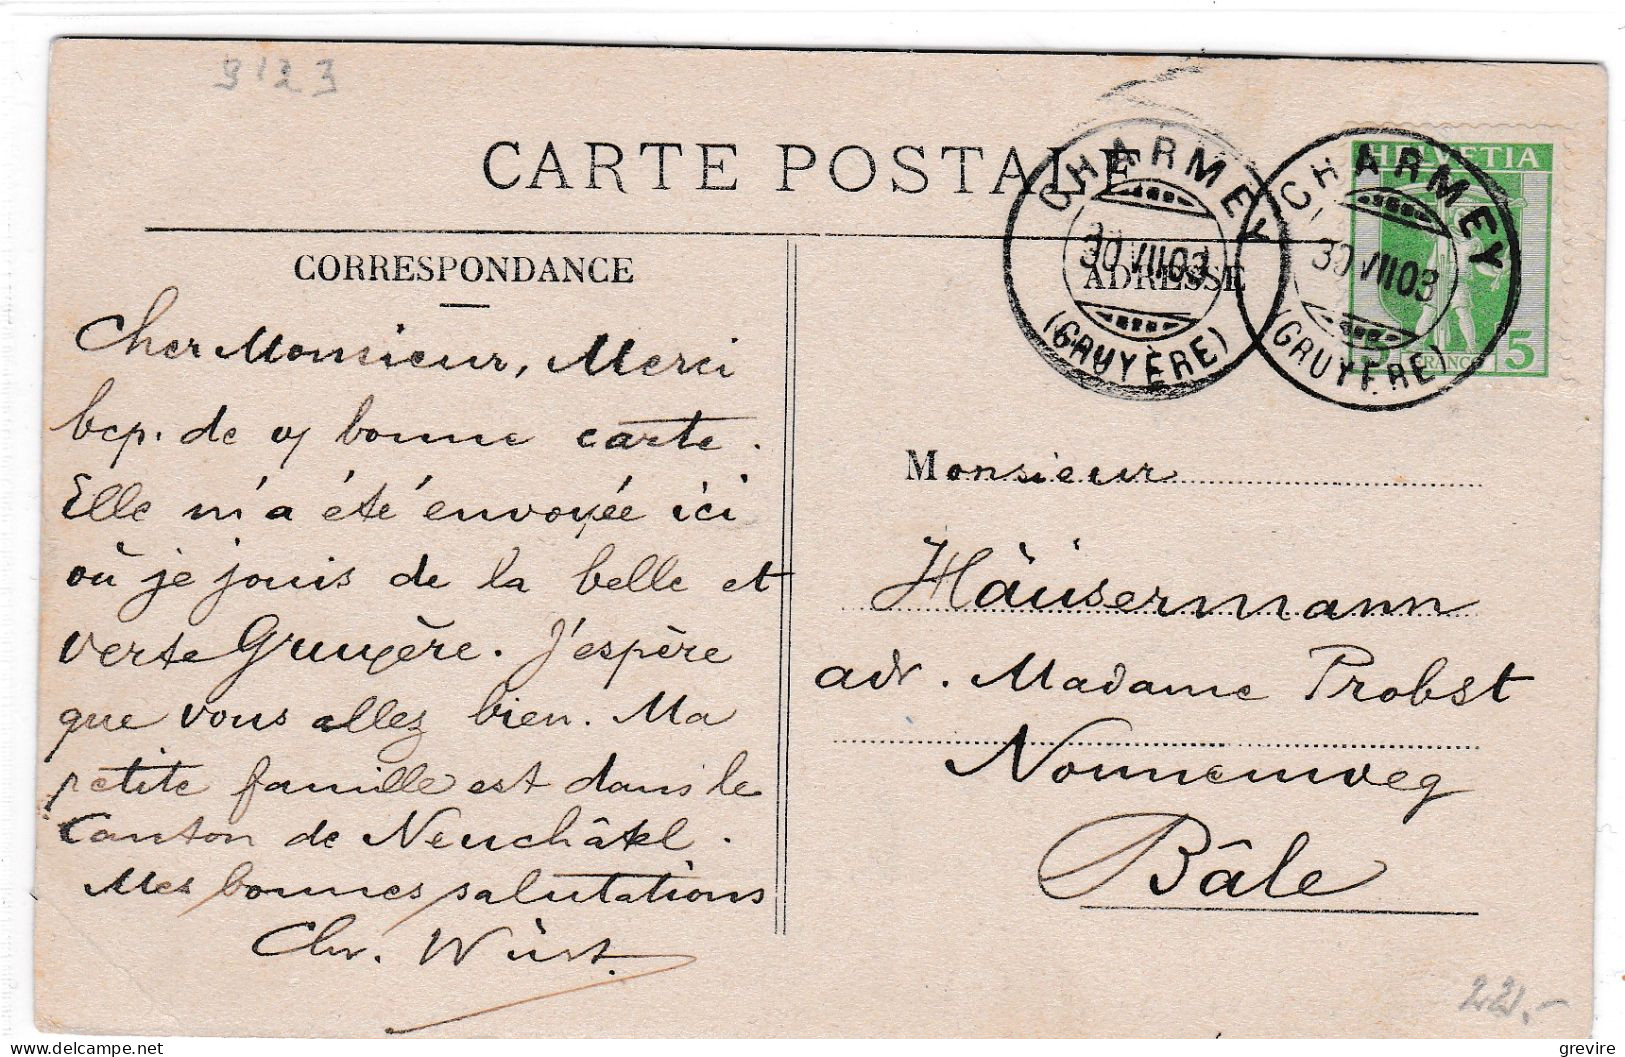 9123
CARTE POSTALE
CHARMEY
30 VII 03
(GRUYÈRE)
CHARMEY
30 VII 03
(GRUYÈRE)
HELVETIA
FRANCO 5
CORRESPONDANCE
ADRESSE
Cher Monsieur, Merci
bcp. de v/ bonne carte.
Elle m'a été envoyée ici
où je jouis de la belle et
verte Gruyère. J'espère
que vous allez bien. Ma
petite famille est dans le
Canton de Neuchâtel.
Mes bonnes salutations
Chr. Wüst.
Monsieur
Häusermann
adr. Madame Probst
Nonnenweg
Bâle
22.-
delcampe.net
grevire